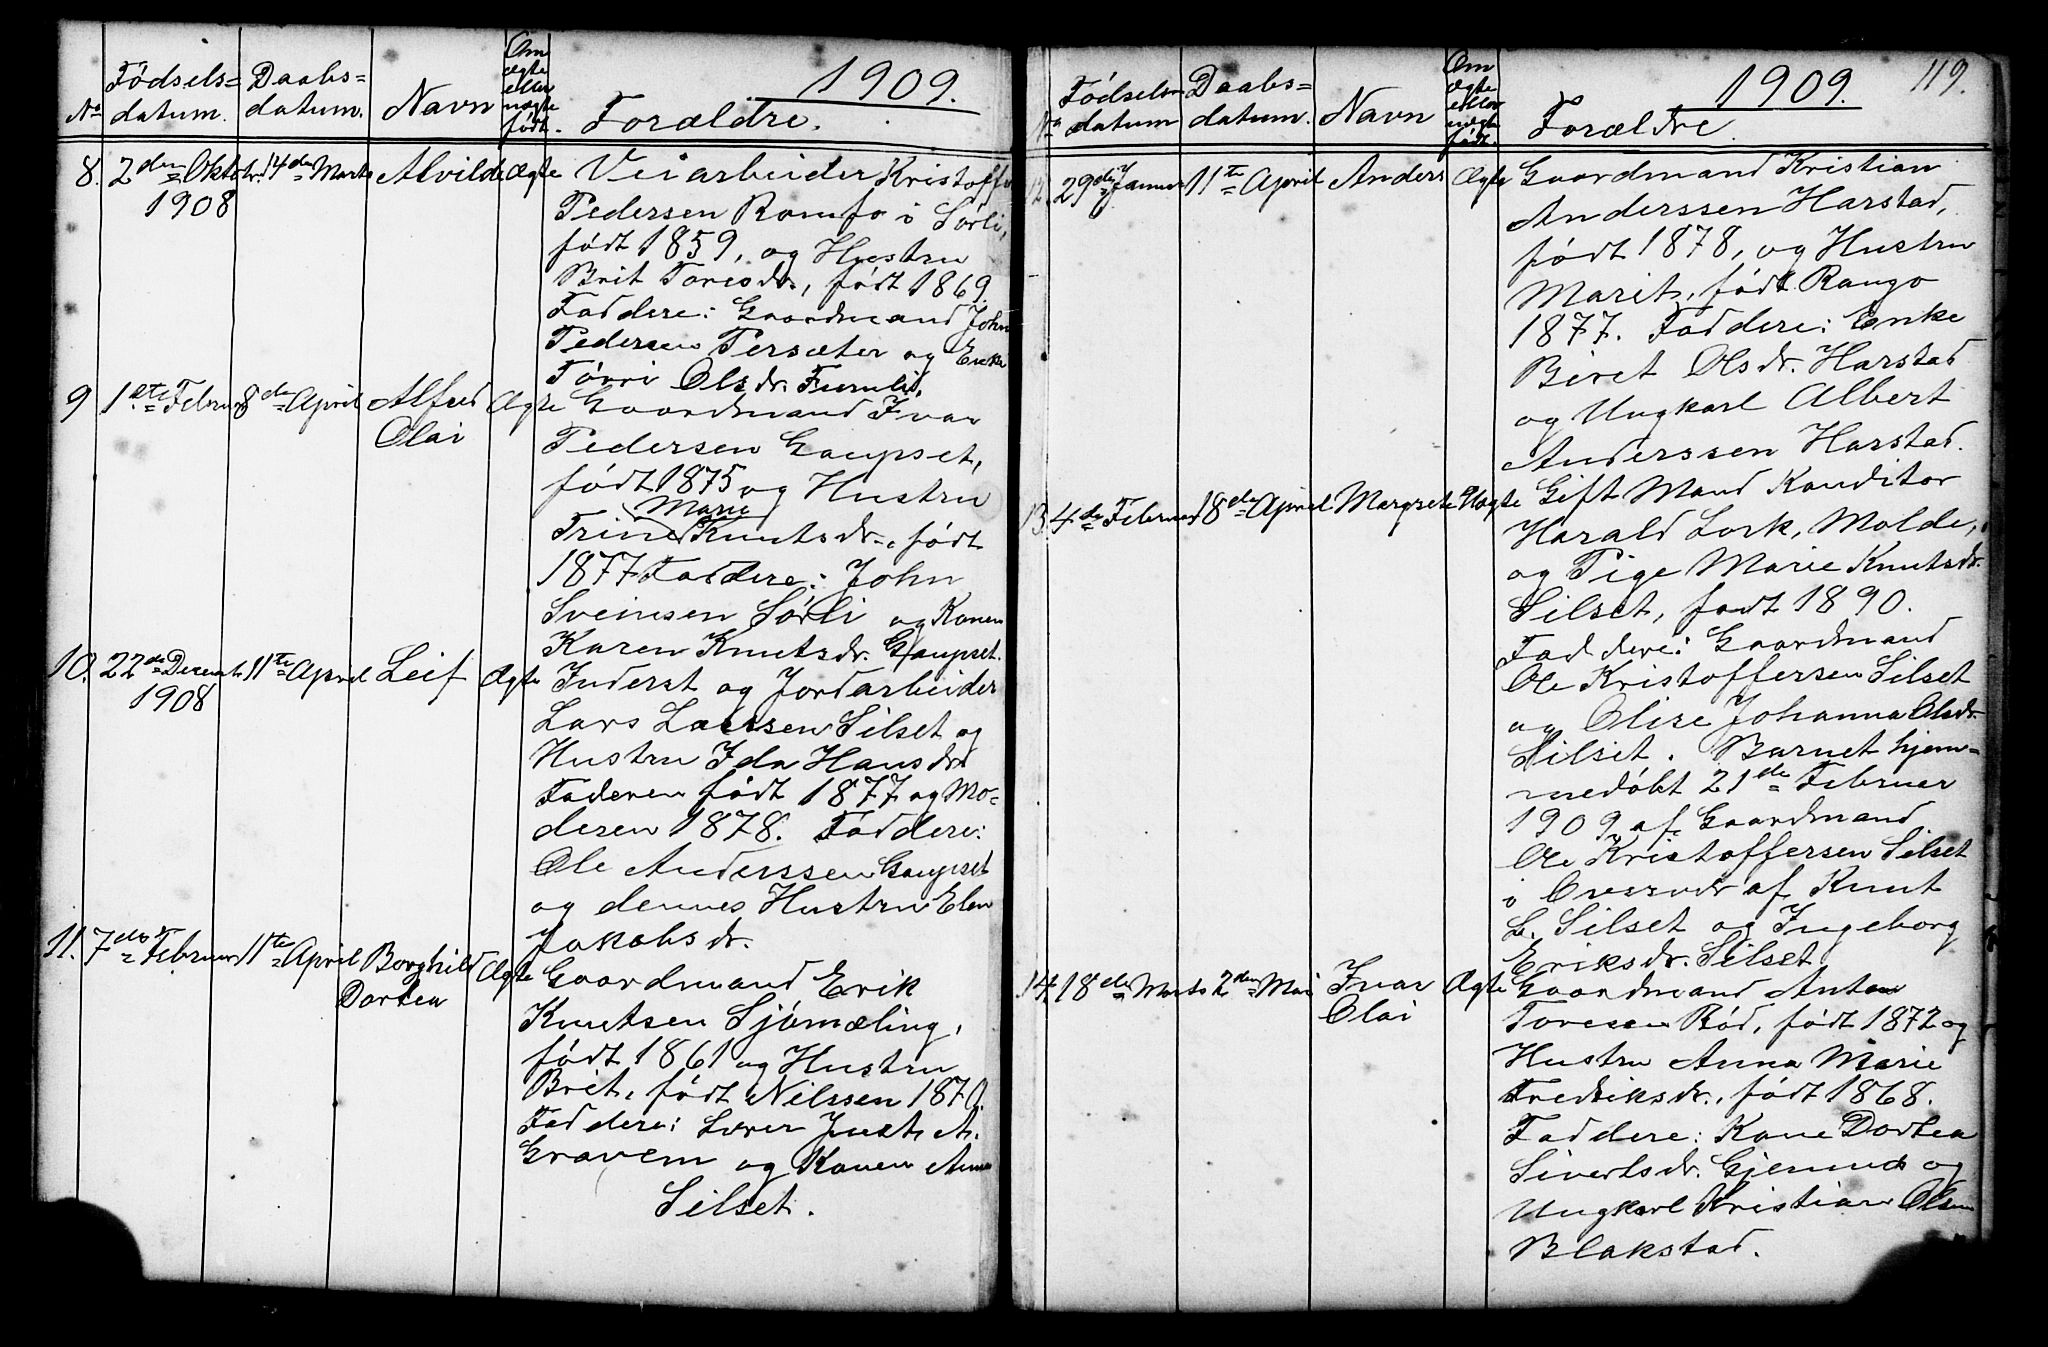 1909.
Om ægte eller uægte født.
No Fødsels=datum. Daabs=datum. Navn Forældre.
8. 2den Oktbr. 14de Marts Alvilde Ægte Veiarbeider Kristoffer
1908 Pedersen Romfo i Sørli,
født 1859, og Hustru
Brit Toresdr., født 1869.
Faddere: Gaardmand John
Pedersen Persæter og Enke
Tørri Olsdr. Furuli.
9 1ste Februar 8de April Alfred Ægte Gaardmand Ivar
Olai Pedersen Gaupset,
født 1875 og Hustru
Marie
Trine Knutsdr., født
1877 Faddere: John
Sveinsen Sørli og Konen
Karen Knutsdr. Gaupset.
10. 22de Decembr 11te April Leif Ægte Inderst og Jordarbeider
1908 Lars Larssen Silset og
Hustru Ida Hansdr.
Faderen født 1877 og Mo-
deren 1878. Faddere:
Ole Anderssen Gaupset
og dennes Hustru Elen
Jakobsdr.
11. 7de Februar 11te April Borghild Ægte Gaardmand Erik
Dortea Knutsen Sjømæling,
født 1861 og Hustru
Brit, født Nilssen 1870.
Faddere: Lærer Just A.
Gravem og Konen Anna
Silset.
1909. 119.
Om ægte eller uægte født.
No Fødsels=datum Daabs=datum. Navn Forældre
12. 29de Januar 11te April Anders Ægte Gaardmand Kristian
Anderssen Harstad,
født 1878, og Hustru
Marit, født Rango
1877. Faddere: Enke
Beret Olsdr. Harstad
og Ungkarl Albert
Anderssen Harstad.
13. 4de Februar 18de April Margrete Uægte Gift Mand Konditor
Harald Lork, Molde,
og Pige Marie Knutsdr.
Silset, født 1890.
Faddere: Gaardmand
Ole Kristoffersen Silset
og Olise Johanna Olsdr.
Silset. Barnet hjem-
medøbt 21de Februar
1909 af Gaardmand
Ole Kristoffersen Silset
i Overvær af Knut
L. Silset og Ingeborg
Eriksdr. Silset
14. 18de Marts 2den Mai Ivar Ægte Gaardmand Anton
Olai Toresen Rød, født 1872 og
Hustru Anna Marie
Fredriksdr., født 1868.
Faddere: Kone Dortea
Sivertsdr. Gjermud og
Ungkarl Kristian Olsen
Blakstad.